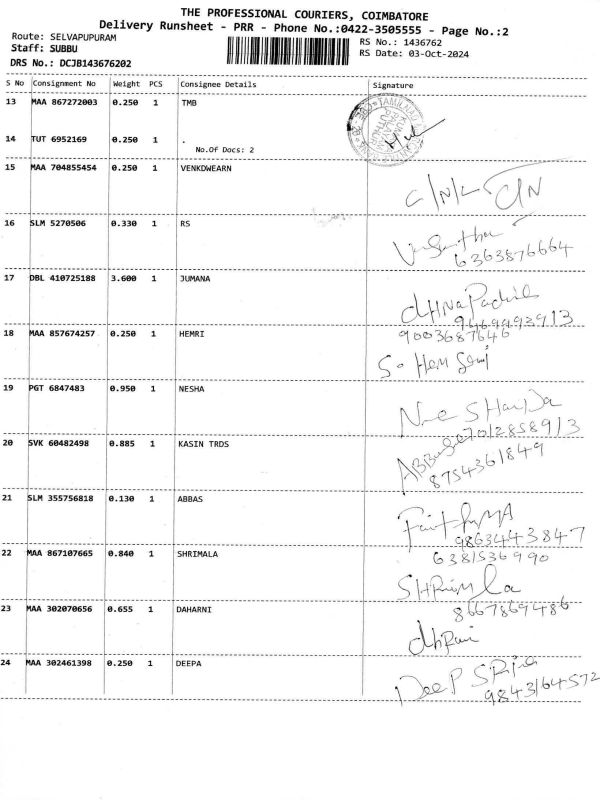 THE PROFESSIONAL COURIERS, COIMBATORE
Delivery Runsheet - PRR - Phone No.:0422-3505555 - Page No.:2
Route: SELVAPUPURAM
Staff: SUBBU
DRS No.: DCJB143676202
RS No.: 1436762
RS Date: 03-Oct-2024
S No Consignment No Weight PCS Consignee Details Signature
13 MAA 867272003 0.250 1 TMB
14 TUT 6952169 0.250 1 .
No.Of Docs: 2
15 MAA 704855454 0.250 1 VENKDWEARN
16 SLM 5270506 0.330 1 RS
6363876664
17 DBL 410725188 3.600 1 JUMANA
9469992913
18 MAA 857674257 0.250 1 HEMRI
9003687646
19 PGT 6847483 0.950 1 NESHA
7012858913
20 SVK 60482498 0.885 1 KASIN TRDS
8754361849
21 SLM 355756818 0.130 1 ABBAS
9863443847
22 MAA 867107665 0.840 1 SHRIMALA
6381536990
23 MAA 302070656 0.655 1 DAHARNI
8667869486
24 MAA 302461398 0.250 1 DEEPA
9843164572